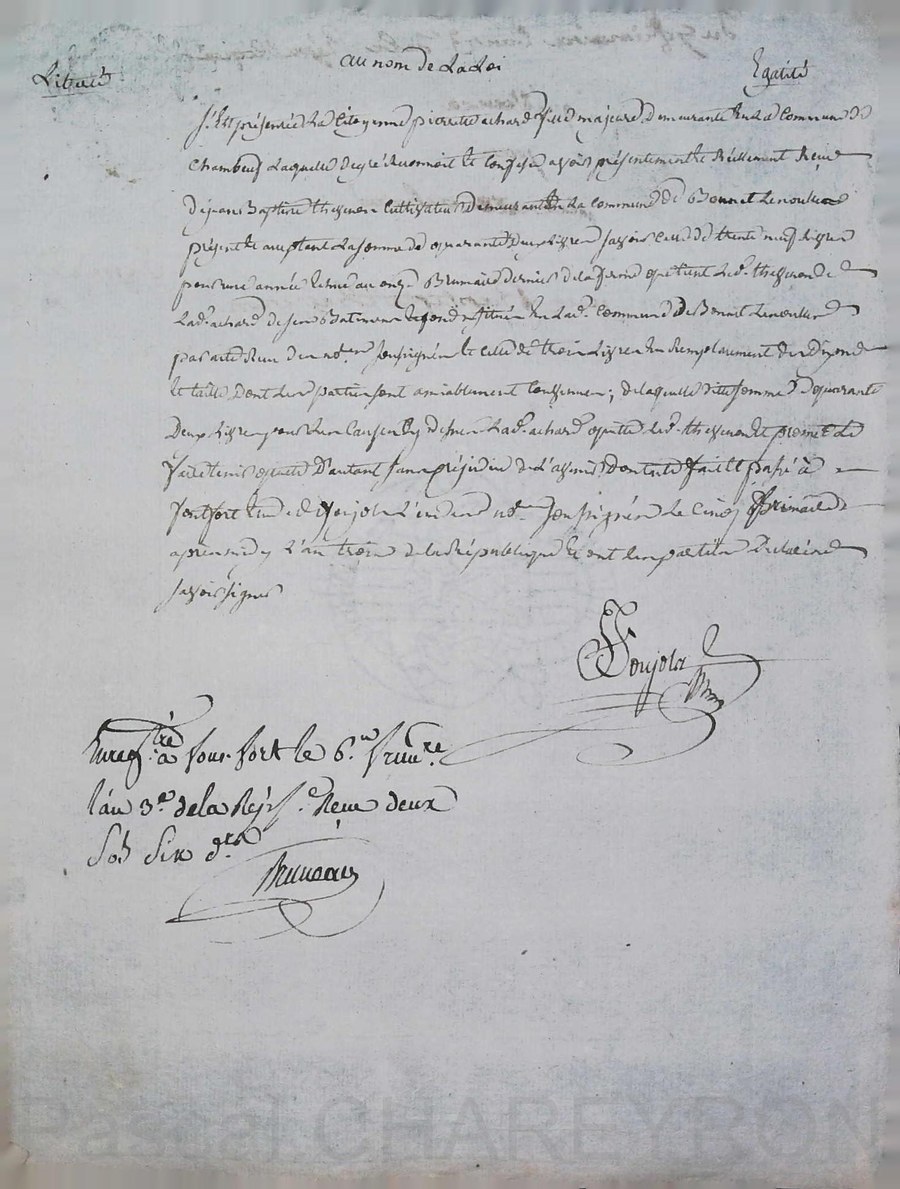 Liberté
au nom de La Loi
Egalité
S'Est présentée La Citoyenne pierrette achard fille majeure demeurante En La Commune de
Chambeuf Laquelle de gré Reconnoit Et Confesse avoir présentement Et Réellement Reçu
de jean Baptiste thevenon Cultivateur demeurant En La Commune de Bonnet Lenoulière
présent Et acceptant La somme de quarante deux Livres savoir Celle de trente neuf Livres
pour une année Echue au onze Brumaire dernier de la ferme que tient Led. thevenon de
Lad. achard de ses Batiments Et fonds situés En Lad. Commune de Bonnet
par acte Reçu du not.re soussigné Et Celle de trois Livres En Remplacement des
Et taille dont Les parties sont amiablement Convenues; de laquelle dite somme de quarante
Deux Livres pour Les Causes Cy dessus Lad. achard quitte Led. thevenon Et promet Le
faire tenir quitte d'autant sans préjudice de fait Et passé à
fontfort Etude de Goujola L'un des not.res soussigné Le Cinq frimaire
après midy L'an trois de la République Et ont Les parties déclaré ne
savoir signer
Goujola
Enreg.tré à fons-fort le 6.e frim.re
l'an 3.e de la Rép. Reçu deux
Sols Six d.ers
Bruneau
Pascal CHAREYRON